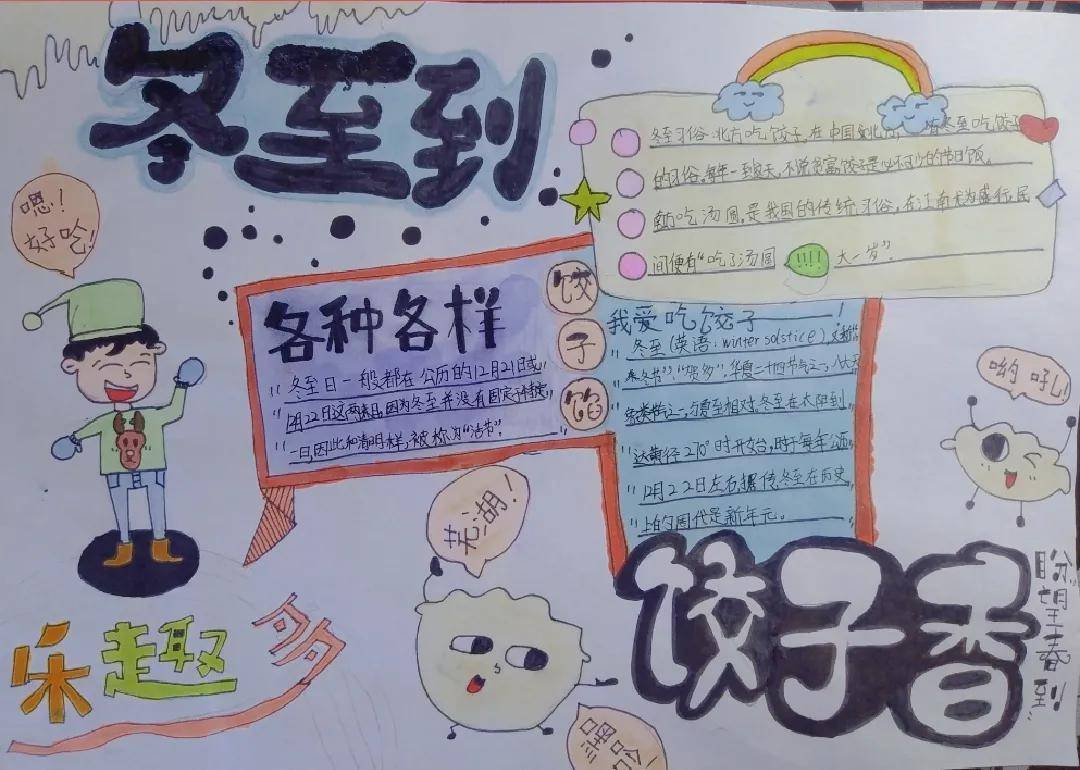 冬至到
冬至习俗:北方吃饺子,在中国 有冬至吃饺子
的习俗,每年一到 天,不说贫富,饺子是必不可少的节日饭。
吃汤圆,是我国的传统习俗,在江南尤为盛行,民
间便有"吃了汤圆 大一岁"。
!!!!
嗯!
好吃!
各种各样
饺
子
馅
冬至日一般都在公历的12月21日或
12月22日这两 因为冬至并没有固定于特定
一日,因此和清明一样,被称为"活节"。
我爱吃饺子!
冬至(英语:winter solstice)又
冬节"、"贺冬",华夏二十四节气之一、八大天
象类节 之一,与夏至相对,冬至在太阳到
达黄经270°时开始,时于每年公历
12月22日左右,据传,冬至在历史
上的周代是新年元。
哟吼!
芜湖!
嘿哈!
乐趣多
饺子香
盼望春到